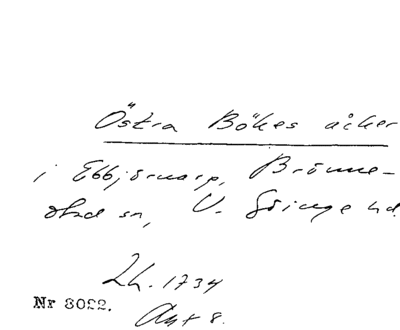 Östra Bökes åker
i Ebbjörnarp, Brönne-
stad sn, V. Göinge hd.
Lh. 1734
Akt 8.
Nr 3022.